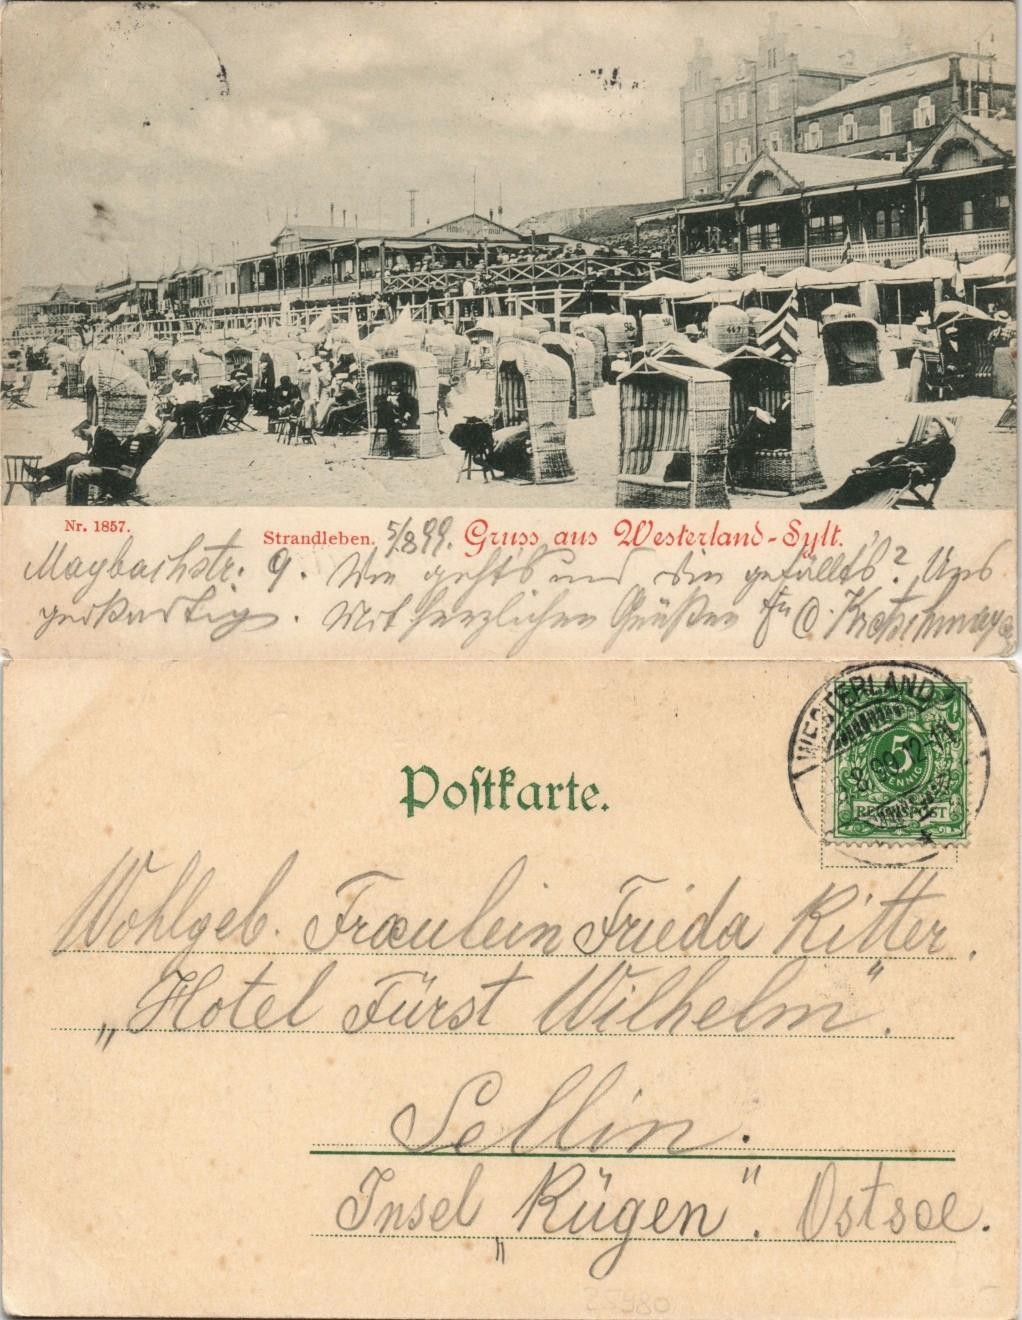 Nr. 1857.
Strandleben. 5/8 99. Gruss aus Westerland-Sylt.
Maybachstr. 9. Wie geht's und wie gefällt's? Uns
großartig. Mit herzlichen Grüßen Frl. O. Kretschmayr
Postkarte.
WESTERLAND
8 99 12-1N
5
PFENNIG
REICHSPOST
Wohlgeb. Fraeulein Frieda Ritter.
„Hotel Fürst Wilhelm".
Sellin.
Insel „Rügen". Ostsee.
25980